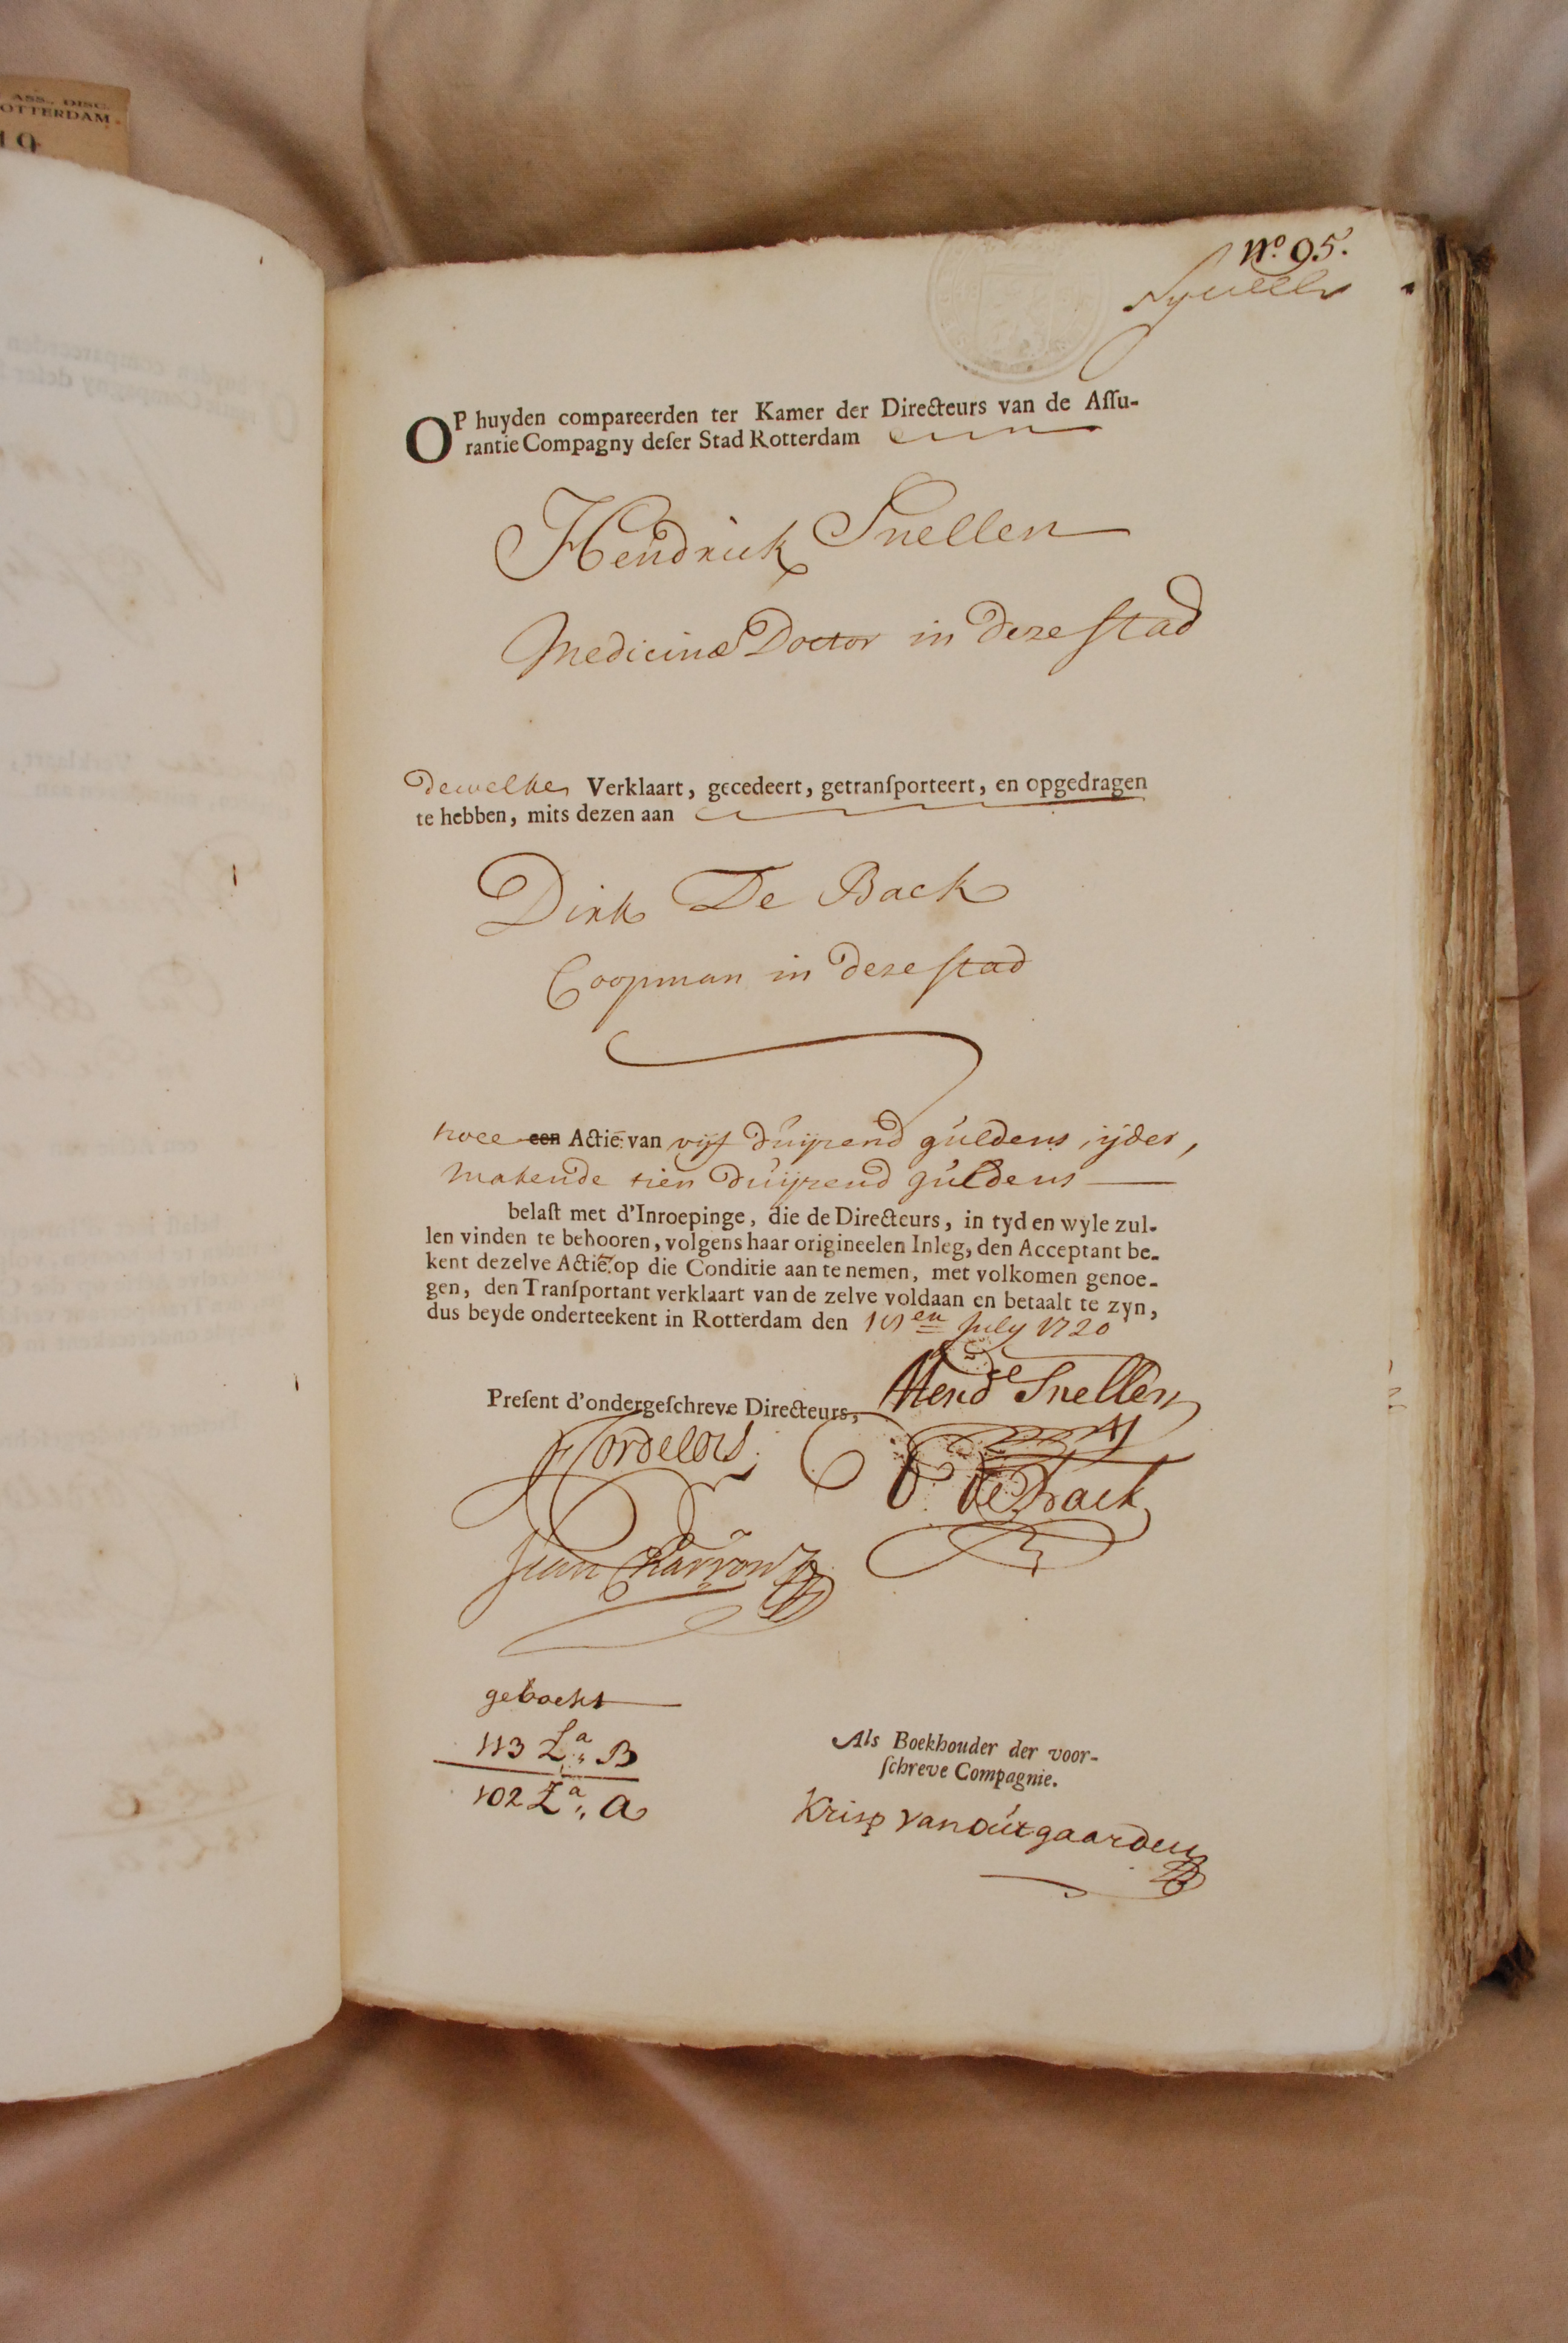 ASS., DISC.
OTTERDAM
19
No. 95.
OP huyden compareerden ter Kamer der Directeurs van de Aſſu-
rantie Compagny deſer Stad Rotterdam
Hendrick Snellen
Medicinæ Doctor in deze stad
dewelke Verklaart, gecedeert, getranſporteert, en opgedragen
te hebben, mits dezen aan
Dirk De Back
Coopman in deze stad
twee een Actie: van vijf duijzend guldens ijder,
makende tien duijzend guldens
belaſt met d'Inroepinge, die de Directeurs, in tyd en wyle zul-
len vinden te behooren, volgens haar origineelen Inleg, den Acceptant be-
kent dezelve Actie: op die Conditie aan te nemen, met volkomen genoe-
gen, den Tranſportant verklaart van de zelve voldaan en betaalt te zyn,
dus beyde onderteekent in Rotterdam den en July 1720
Preſent d'ondergeſchreve Directeurs,
Hend Snellen
De Back
Jean Charron
geboekt
113 La B
102 La A
Als Boekhouder der voor-
ſchreve Compagnie.
Krisp van outgaarden